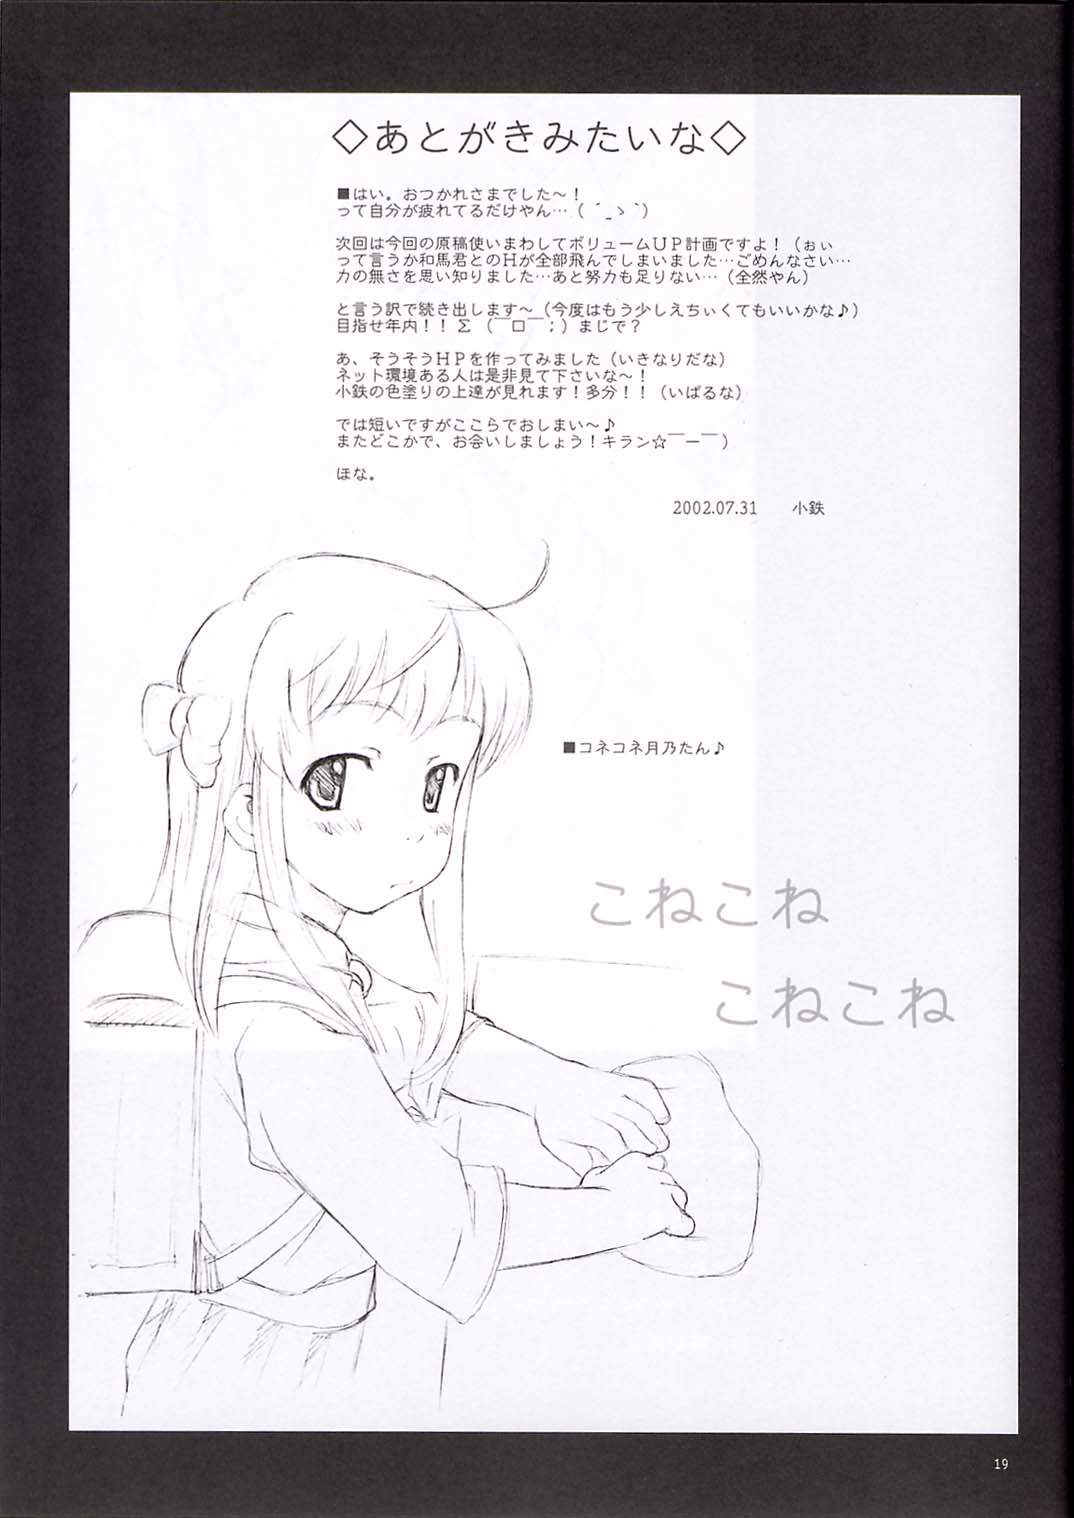 ◇あとがきみたいな◇
■はい。おつかれさまでした～！
って自分が疲れてるだけやん…（ ´_ゝ`）
次回は今回の原稿使いまわしてボリュームＵＰ計画ですよ！（ぉぃ
って言うか和馬君とのＨが全部飛んでしまいました…ごめんなさい…
力の無さを思い知りました…あと努力も足りない…（全然やん）
と言う訳で続き出します～（今度はもう少しえちぃくてもいいかな♪）
目指せ年内！！Σ（￣□￣；）まじで？
あ、そうそうＨＰを作ってみました（いきなりだな）
ネット環境ある人は是非見て下さいな～！
小鉄の色塗りの上達が見れます！多分！！（いばるな）
では短いですがここらでおしまい～♪
またどこかで、お会いしましょう！キラン☆￣ー￣）
ほな。
2002.07.31　小鉄
■コネコネ月乃たん♪
こねこね
こねこね
19